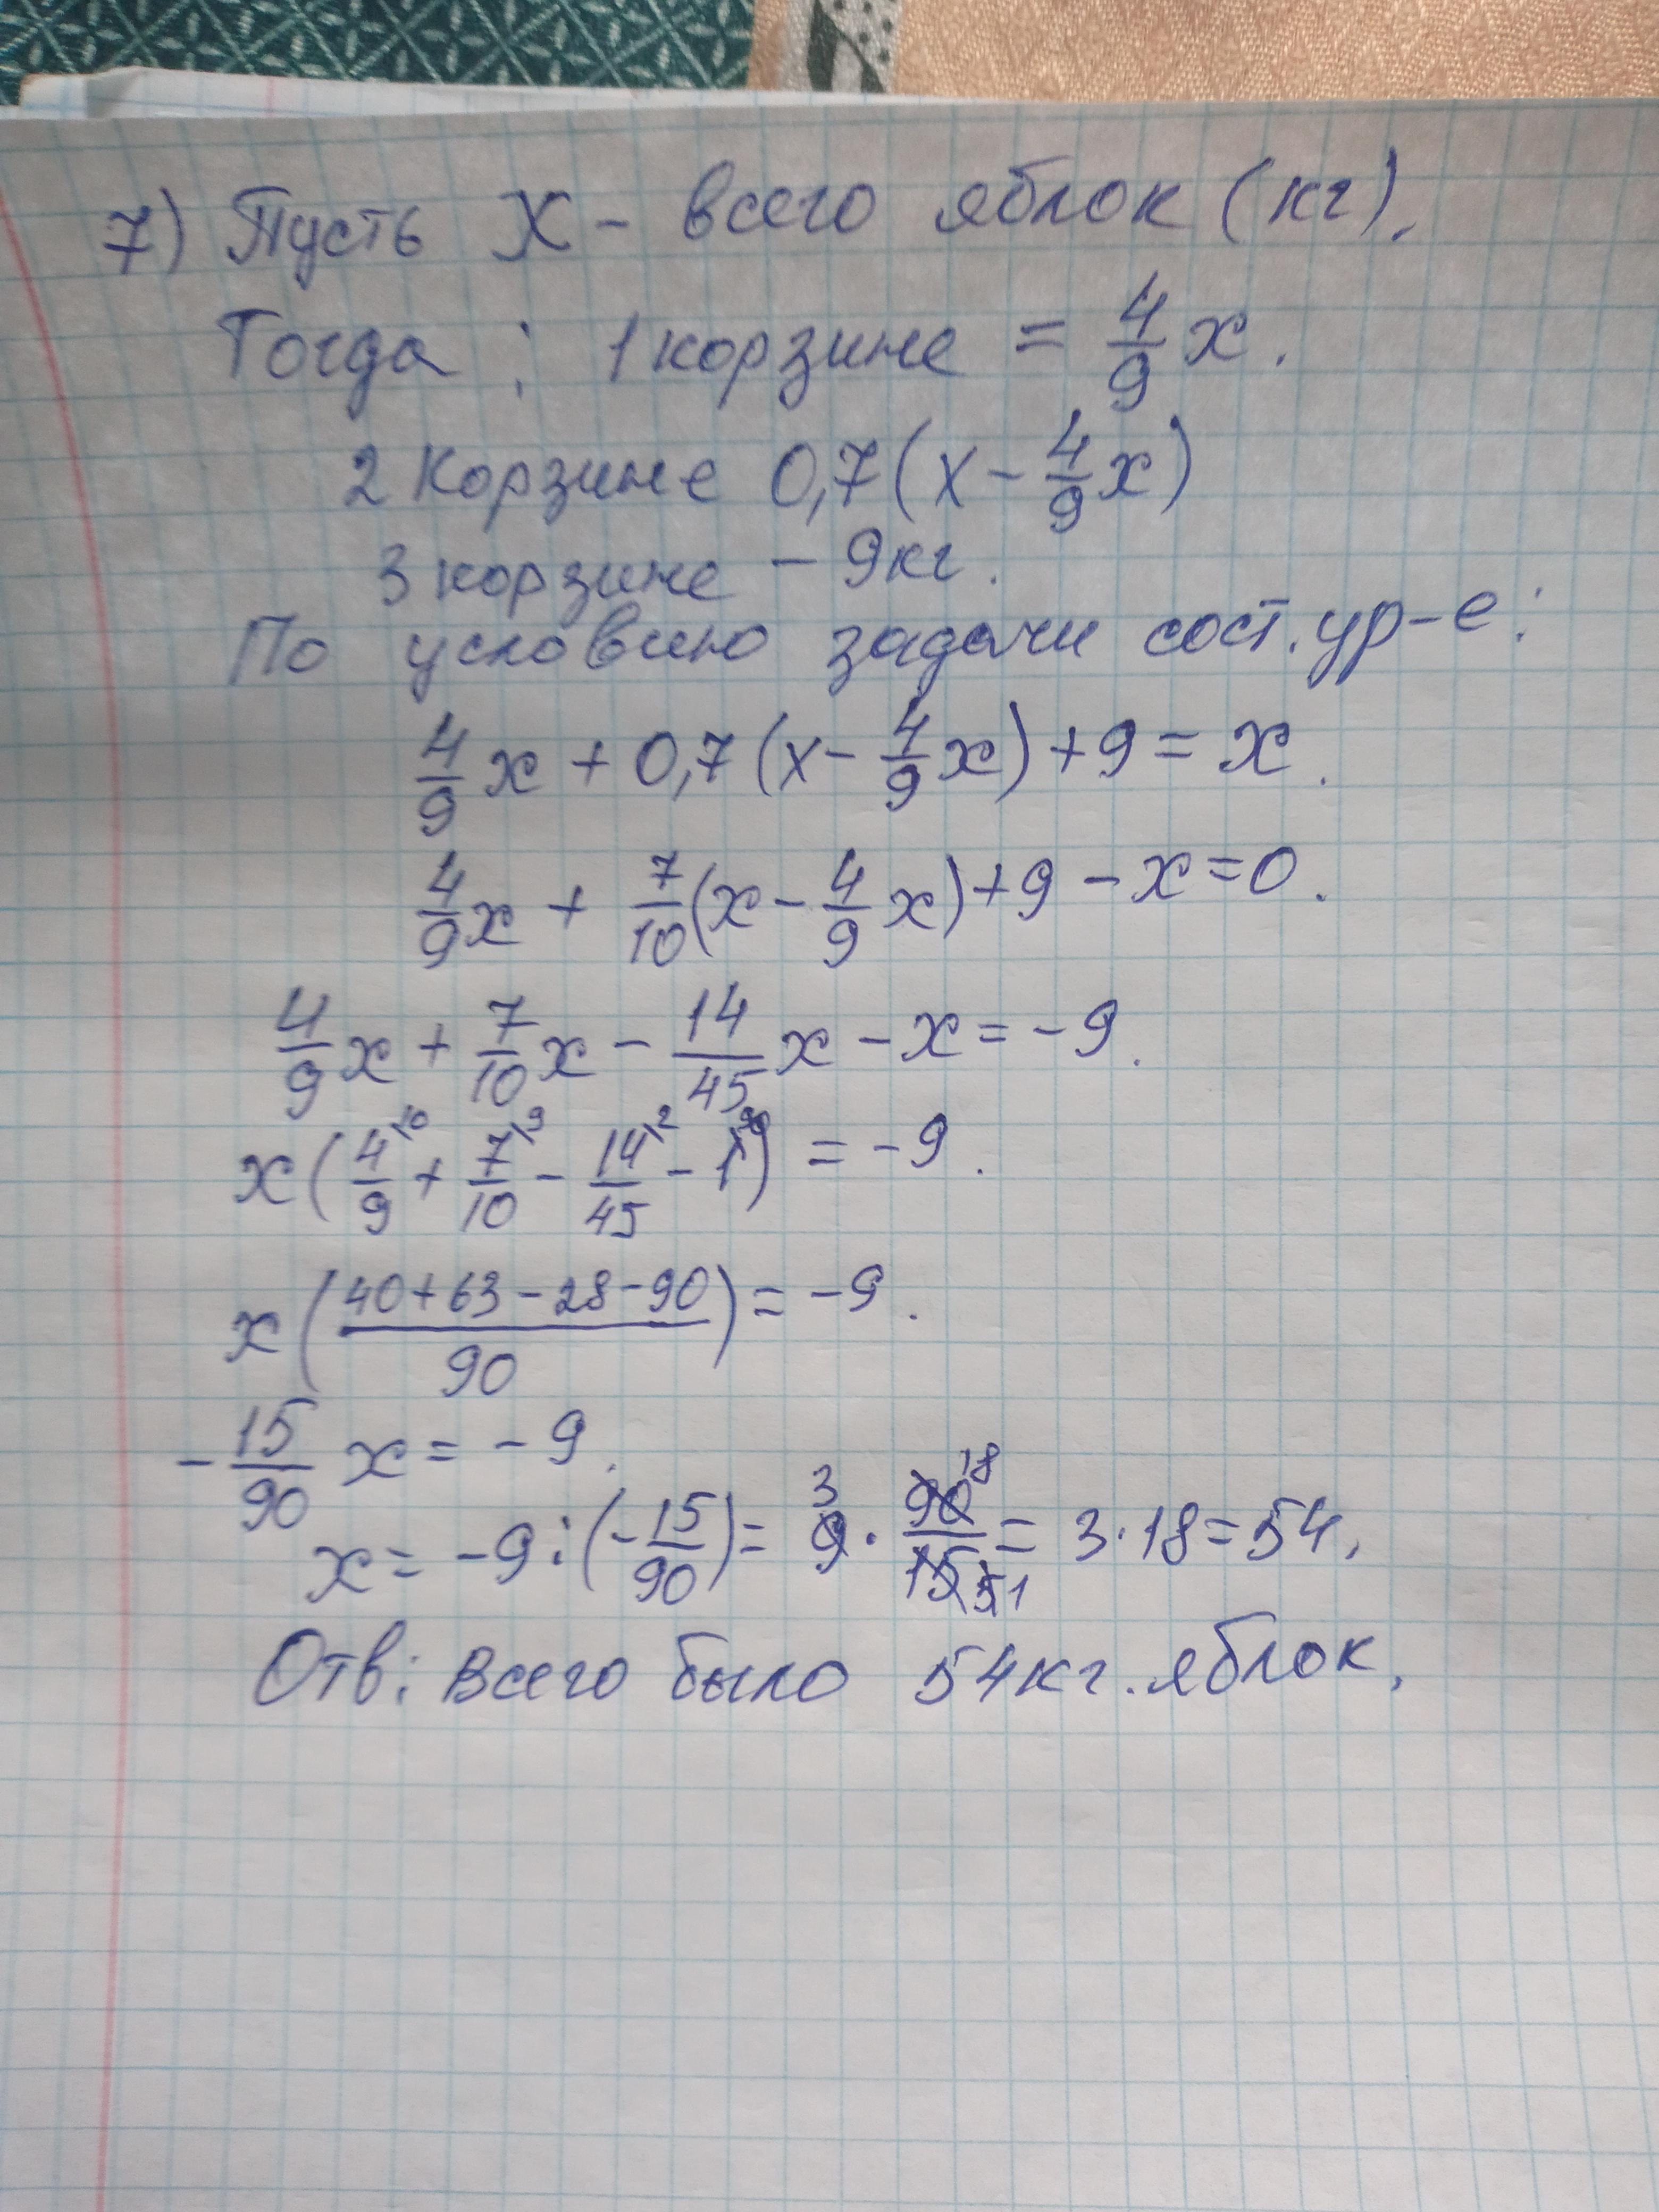 7) Пусть X - всего яблок (кг).
Тогда: 1 корзине = 4/9 x.
2 корзине 0,7(x - 4/9 x)
3 корзине - 9кг.
По условию задачи сост. ур-е:
4/9 x + 0,7(x - 4/9 x) + 9 = x.
4/9 x + 7/10 (x - 4/9 x) + 9 - x = 0.
4/9 x + 7/10 x - 14/45 x - x = -9.
x(4/9 \10 + 7/10 \9 - 14/45 \2 - 1 \90) = -9.
x((40+63-28-90)/90) = -9.
- 15/90 x = -9.
x = -9 : (- 15/90) = 9 3 · 90 18 / 15 5 1 = 3·18 = 54.
Отв: Всего было 54кг. яблок.